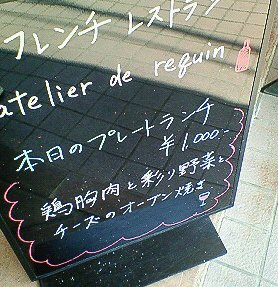 フレンチ レストラン
atelier de requin
本日のプレートランチ
¥1,000-
鶏胸肉と彩り野菜と
チーズのオーブン焼き